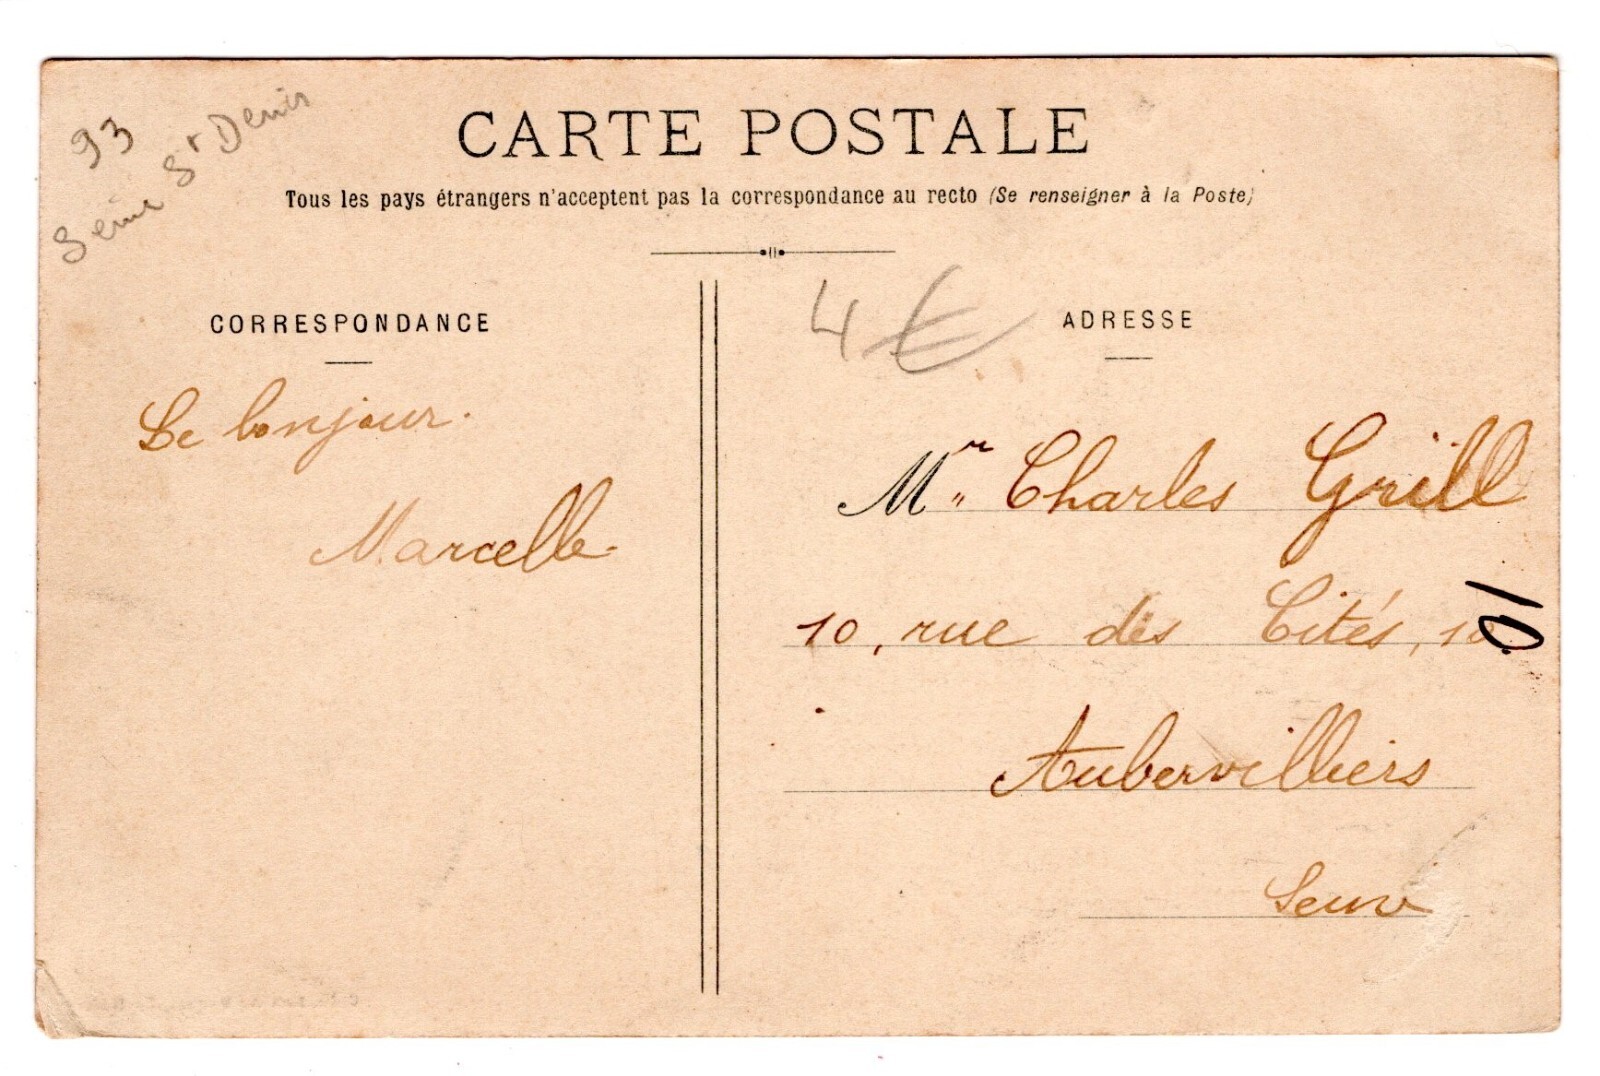 93
Seine St Denis
CARTE POSTALE
Tous les pays étrangers n'acceptent pas la correspondance au recto (Se renseigner à la Poste)
CORRESPONDANCE
Le bonjour.
Marcelle.
4 €
ADRESSE
Mr Charles Grill
10, rue des Cités, 10
10
Aubervilliers
Seine